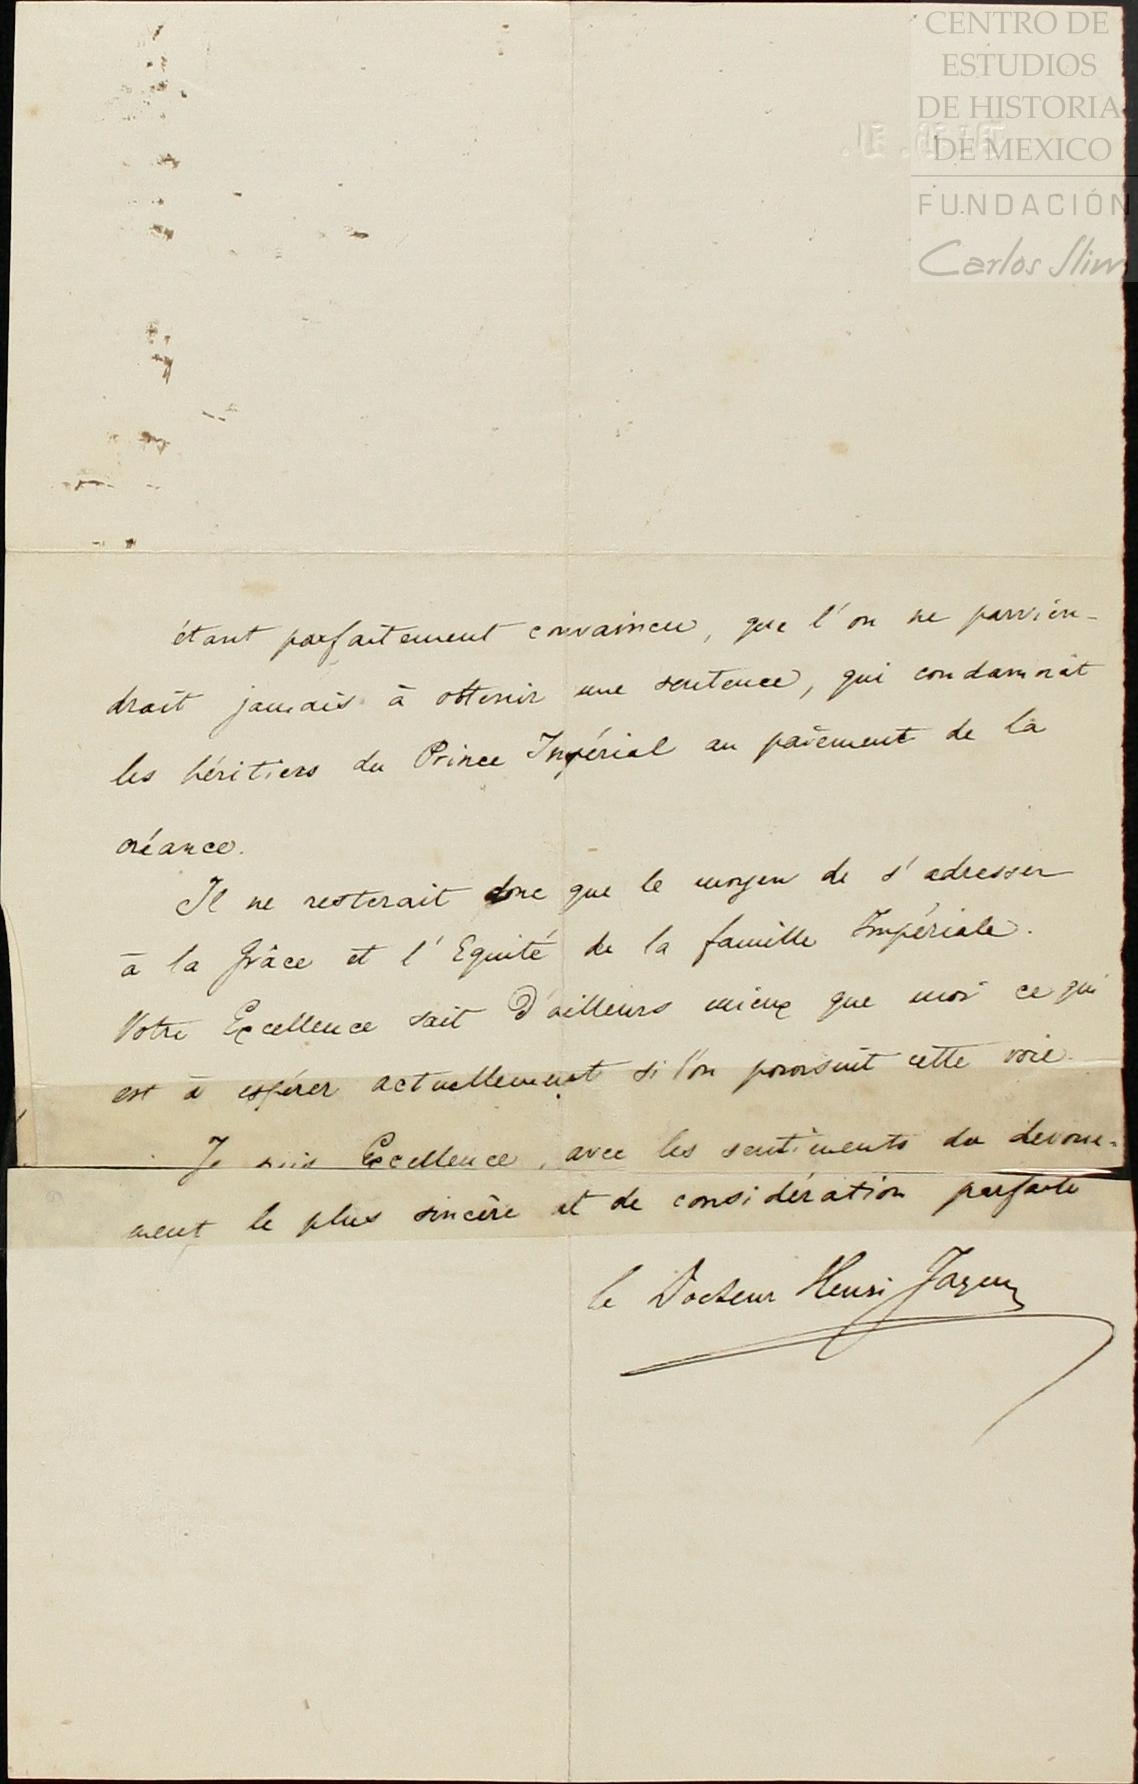 CENTRO DE
ESTUDIOS
DE HISTORIA
DE MEXICO
FUNDACIÓN
Carlos Slim
étant parfaitement convaincu, que l'on ne parvien-
drait jamais à obtenir une sentence, qui condamnât
les héritiers du Prince Impérial au paiement de la
créance.
Il ne resterait donc que le moyen de s'adresser
à la Grâce et l'Equité de la famille Impériale.
Votre Excellence sait d'ailleurs mieux que moi ce qui
est à espérer actuellement si l'on poursuit cette voie.
Je suis Excellence, avec les sentiments du devoue-
ment le plus sincère et de considération parfaite
le Docteur Henri